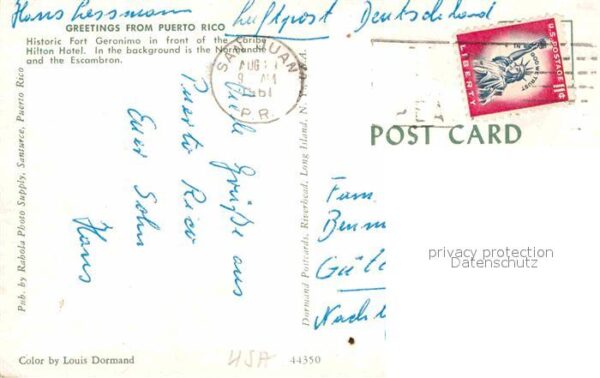 Hans Lessmann Luftpost Deutschland
GREETINGS FROM PUERTO RICO
Historic Fort Geronimo in front of the Caribe
Hilton Hotel. In the background is the Normandie
and the Escambron.
SAN JUAN
AUG
9 AM
1961
P.R.
U.S. POSTAGE
LIBERTY
IN GOD WE TRUST
11¢
POST CARD
Viele Grüße aus
Puerto Rico
Euer Sohn
Hans
Pub. by Rahola Photo Supply, Santurce, Puerto Rico
Dormand Postcards, Riverhead, Long Island, N.
Fam.
privacy protection
Datenschutz
Color by Louis Dormand
USA
44350